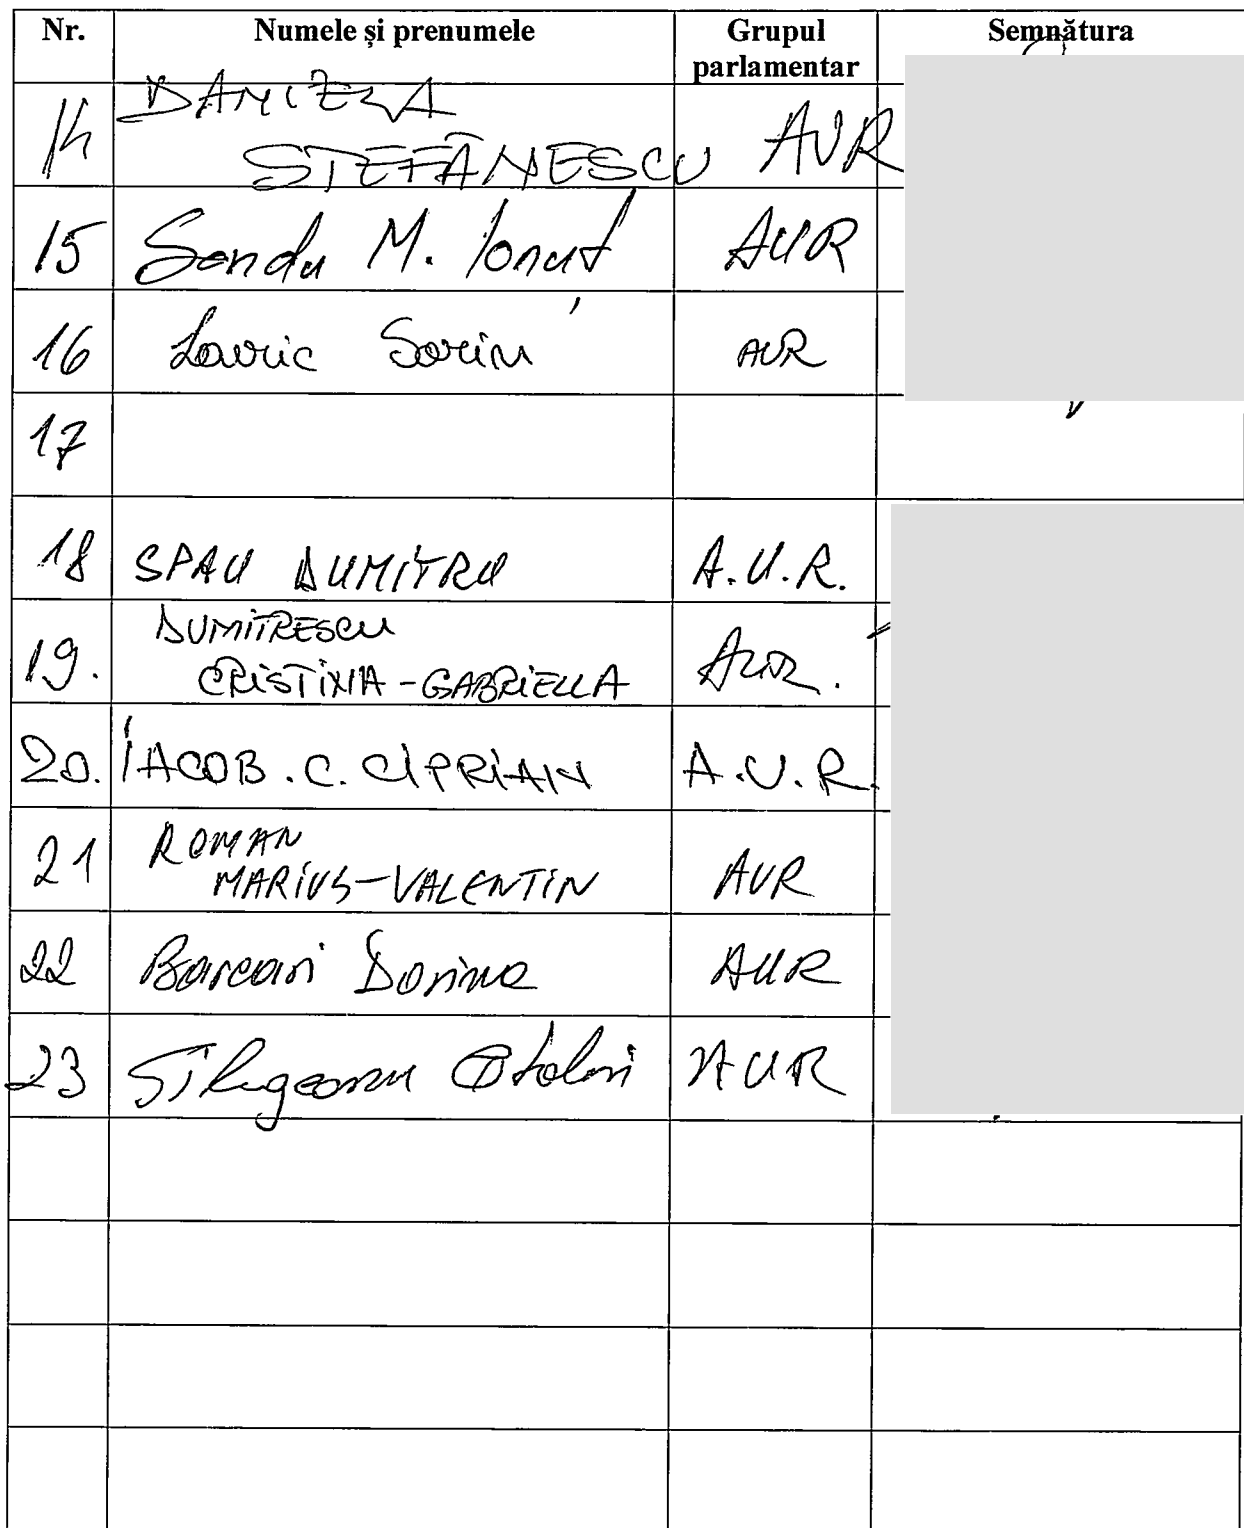 Nr. Numele și prenumele Grupul parlamentar Semnătura
14 DANIELA
ȘTEFĂNESCU AUR
15 Sandu M. Ionuț AUR
16 Lavric Sorin AUR
17
18 SPAU DUMITRU A.U.R.
19. DUMITRESCU
CRISTINA-GABRIELLA AUR.
20. IACOB.C. CIPRIAN A.U.R.
21 ROMAN
MARIUS-VALENTIN AUR
22 Barcari Dorina AUR
23 AUR